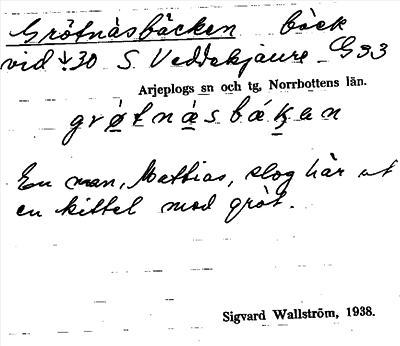 Grötnäsbäcken bäck
vid ↓30 S. Veddekjaure G S3
Arjeplogs sn och tg, Norrbottens län.
grø̀tnæ̀sbækan
En man, Mattias, slog här ut
en kittel med gröt.
Sigvard Wallström, 1938.